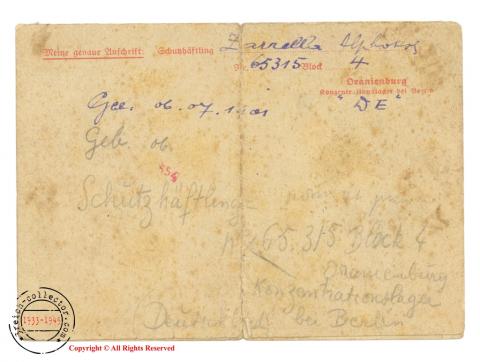 Meine genaue Anschrift: Schutzhäftling Zarrella
Nr. 65315 Block 4
Oranienburg
Konzentrationslager bei Berlin
"DE"
Geb. 06.07.
Geb. 06
Schutzhäftling
N° 65.315 Block 4
Oranienburg
Konzentrationslager
Deutschland bei Berlin
reich-collector.com
1933-1945
Copyright © All Rights Reserved